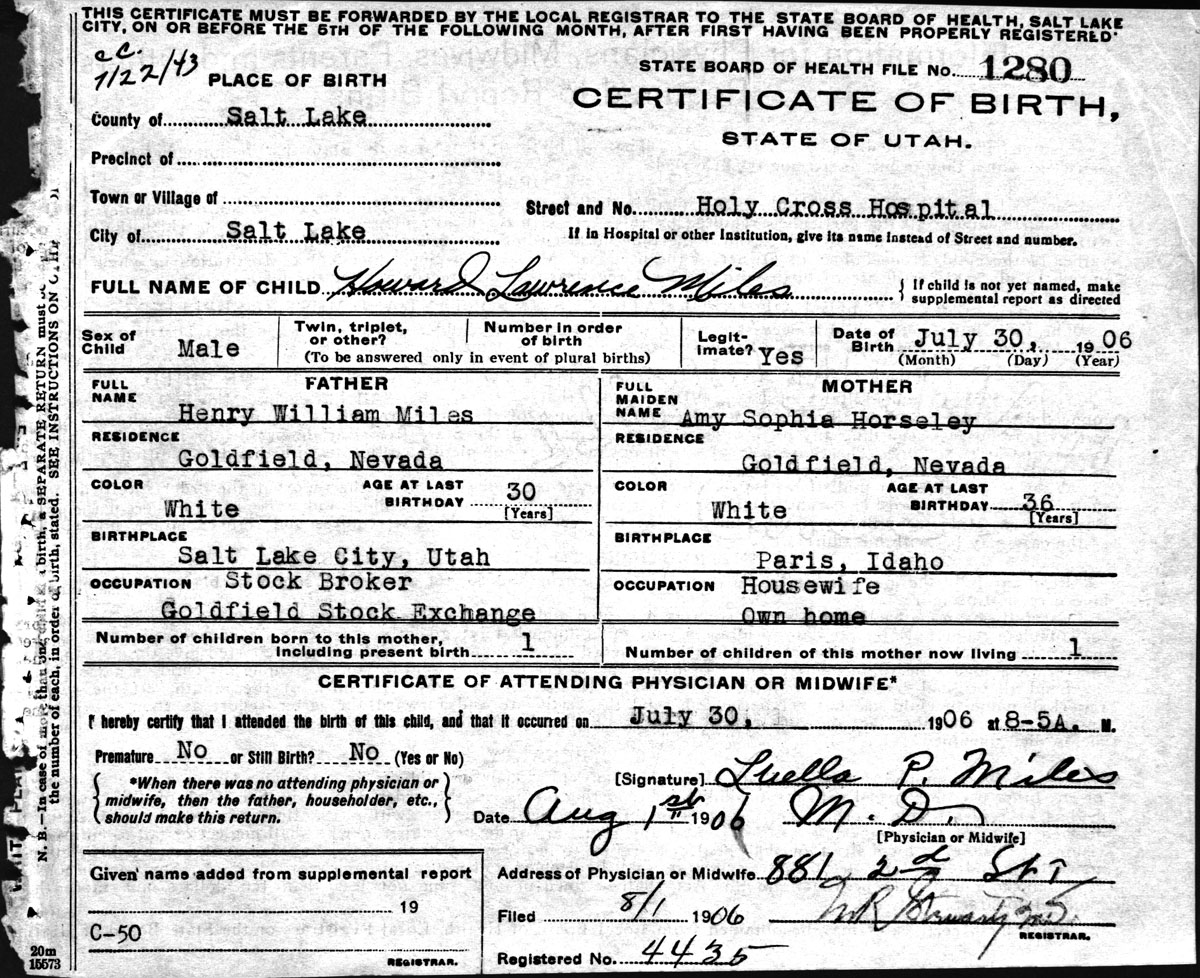 THIS CERTIFICATE MUST BE FORWARDED BY THE LOCAL REGISTRAR TO THE STATE BOARD OF HEALTH, SALT LAKE
CITY, ON OR BEFORE THE 5TH OF THE FOLLOWING MONTH, AFTER FIRST HAVING BEEN PROPERLY REGISTERED.
cc.
7/22/43
PLACE OF BIRTH
STATE BOARD OF HEALTH FILE No. 1280
CERTIFICATE OF BIRTH,
STATE OF UTAH.
County of Salt Lake
Precinct of
Town or Village of
City of Salt Lake
Street and No. Holy Cross Hospital
If in Hospital or other Institution, give its name instead of Street and number.
FULL NAME OF CHILD Howard Lawrence Miles
{ If child is not yet named, make
supplemental report as directed
Sex of Child Male
Twin, triplet, or other?
Number in order of birth
(To be answered only in event of plural births)
Legitimate? Yes
Date of Birth July 30, 1906
(Month) (Day) (Year)
FATHER
FULL NAME
Henry William Miles
RESIDENCE
Goldfield, Nevada
COLOR
White
AGE AT LAST BIRTHDAY 30
[Years]
BIRTHPLACE
Salt Lake City, Utah
OCCUPATION Stock Broker
Goldfield Stock Exchange
Number of children born to this mother,
including present birth 1
MOTHER
FULL MAIDEN NAME Amy Sophia Horseley
RESIDENCE
Goldfield, Nevada
COLOR
White
AGE AT LAST BIRTHDAY 36
[Years]
BIRTHPLACE
Paris, Idaho
OCCUPATION Housewife
Own home
Number of children of this mother now living 1
CERTIFICATE OF ATTENDING PHYSICIAN OR MIDWIFE*
I hereby certify that I attended the birth of this child, and that it occurred on July 30, 1906 at 8-5A. M.
Premature No or Still Birth? No (Yes or No)
{ *When there was no attending physician or
midwife, then the father, householder, etc.,
should make this return. }
[Signature] Luella P. Miles
Date Aug 1st 1906 M. D.
[Physician or Midwife]
Given name added from supplemental report
19
C-50
REGISTRAR.
Address of Physician or Midwife 881 2nd St
Filed 8/1 1906
REGISTRAR.
Registered No. 4435
N. B.—In case of more than one birth, a SEPARATE RETURN must
the number of each, in order of birth, stated. SEE INSTRUCTIONS ON
20m
15573